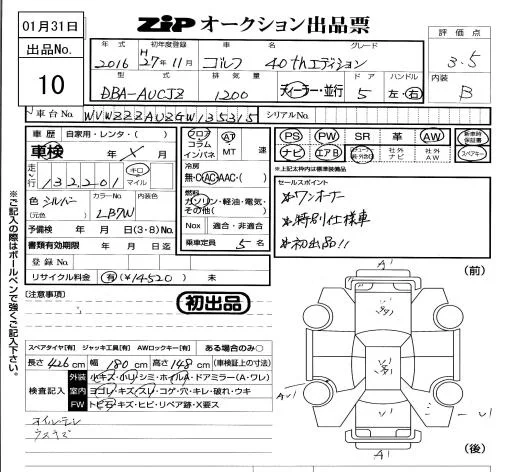 01月31日
出品No.
10
ZIP オークション出品票
評価点
3.5
内装
B
年式 初年度登録 車名 グレード
2016 H27年11月 ゴルフ 40thエディション
型式 排気量 ドア ハンドル
DBA-AUCJZ 1200 ディーラー・並行 5 左・右
車台No. WVWZZZAUZGW135315 シリアルNo.
車歴 自家用・レンタ・( )
車検 年 X 月
走行 132,201 キロ マイル
色 シルバー カラーNo. LB7W 内装色
(元色)
予備検 年 月 日(3・8)No.
書類有効期限 年 月 日迄
登録No.
リサイクル料金 有(¥14520) 未
フロア コラム インパネ AT MT 速
冷房
無・C・AC・AAC・( )
燃料
ガソリン・軽油・電気・その他( )
Nox 適合・非適合
乗車定員 5 名
PS PW SR 革 AW 新車時保証書
ナビ エアB 社外ナビ 社外AW スペアキー
※上記太枠内は標準装備品
セールスポイント
*ワンオーナー
*特別仕様車
*初出品!!
※ご記入の際はボールペンで強くご記入下さい。
[注意事項]
初出品
スペアタイヤ[有] ジャッキ工具[有] AWロックキー[有] ある場合のみ○
長さ 426 cm 幅 180 cm 高さ 148 cm (車検証上の寸法)
検査記入
外装 小キズ・小凹・シミ・ホイルA・ドアミラー(A・ワレ)
室内 ヨゴレ・キズ・スレ・コゲ・穴・キレ・破れ・ウキ
FW トビ石・キズ・ヒビ・リペア跡・X要ス
ウスキズ
(前)
A1
AU1
U1
U1
A1
(後)